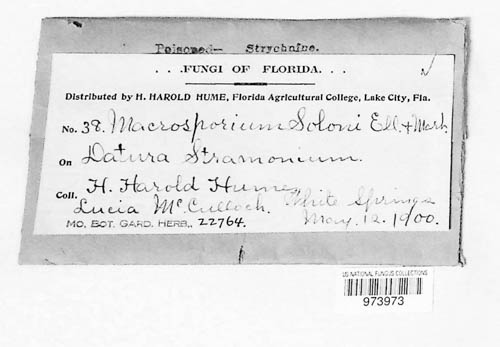 Poisoned— Strychnine.
. . .FUNGI OF FLORIDA. . .
Distributed by H. HAROLD HUME, Florida Agricultural College, Lake City, Fla.
No. 38. Macrosporium Soloni Ell. & Mart.
On Datura Stramonium.
Coll. H. Harold Hume,
Lucia McCulloch. White Springs
May. 12. 1900.
MO. BOT. GARD. HERB., 22764.
US NATIONAL FUNGUS COLLECTIONS
973973